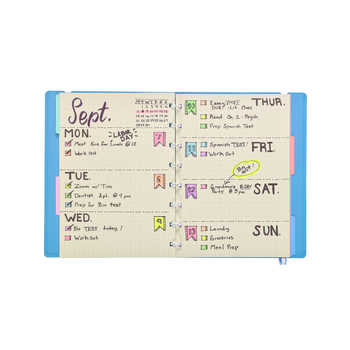 Sept.
M T W T F S S
MON.
LABOR DAY
7
Meet Sue for Lunch @ 12
Work out
TUE.
8
Zoom w/ Tim
Dentist Apt. @ 4 pm
Prep for Bio test
WED.
9
Bio TEST today!
Work out
THUR.
10
Essay DUE! - Lit Class
Read Ch. 2 - Psych
Prep Spanish Test
FRI.
11
Spanish TEST!
Work Out
SAT.
12
Grandma's BDAY
Party @ 5 pm
SUN.
13
Laundry
Groceries
Meal Prep